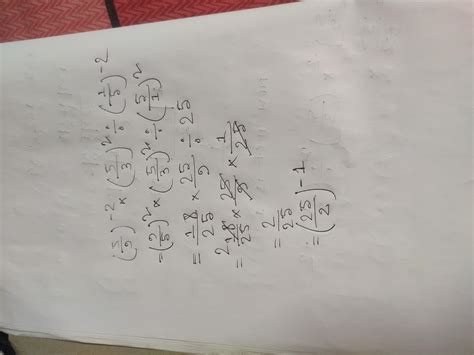 (5/2)^-2 × (5/3)^2 ÷ (1/5)^-2
=(2/5)^2 × (5/3)^2 ÷ (5/1)^2
= 18/25 × 25/9 ÷ 25
= 2 18/25 × 25/9 × 1/25
= 2/25
= (25/2)^-1